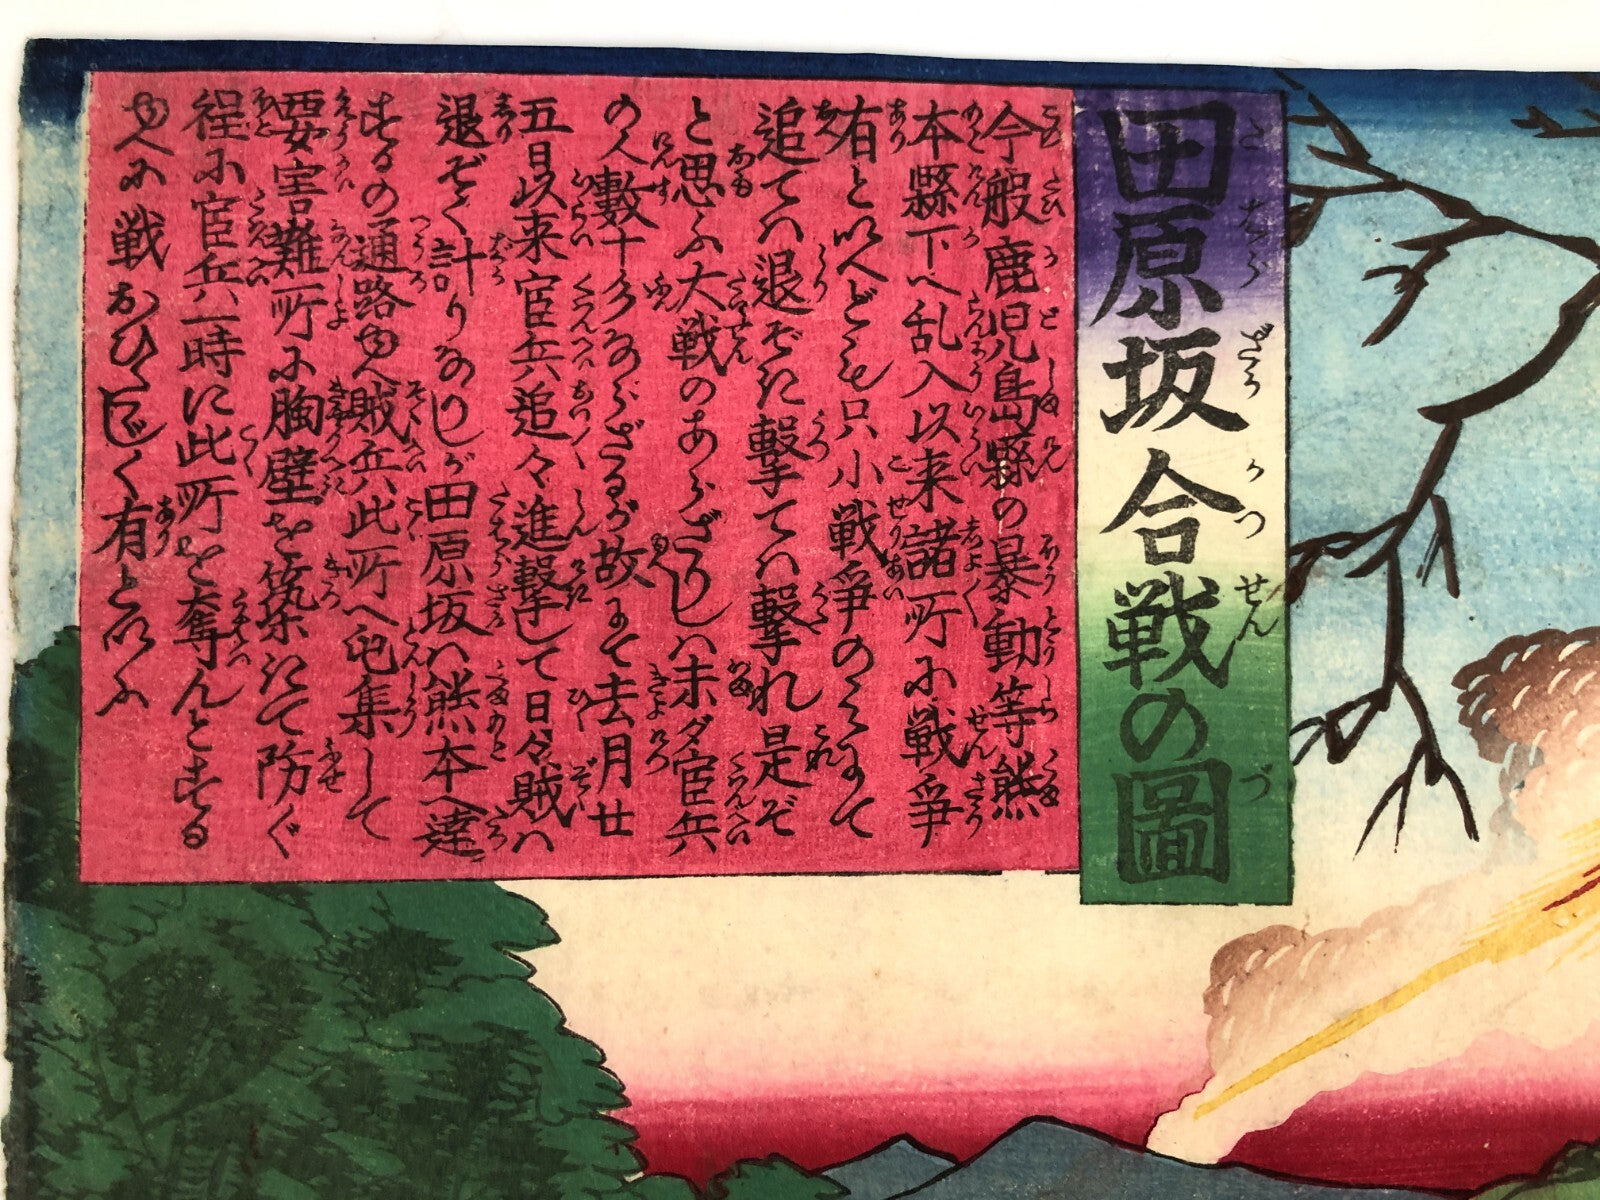 田原坂合戦の圖
今般鹿児島縣の暴動等熊
本縣下へ乱入以来諸所に戦爭
有といへども只小戦爭のみにて
追てハ退ぞき撃てハ撃れ是ぞ
と思ふ大戦のあらざりしハ未ダ官兵
の人數十分ならざるが故にて去月廿
五日以来官兵追々進撃して日々賊ハ
退ぞく計りなりしが田原坂ハ熊本へ達
するの通路ゆへ賊兵此所へ屯集して
要害難所に胸壁を築きて防ぐ
程に官兵一時に此所を奪んとする
ゆへに戦おひたじく有といふ